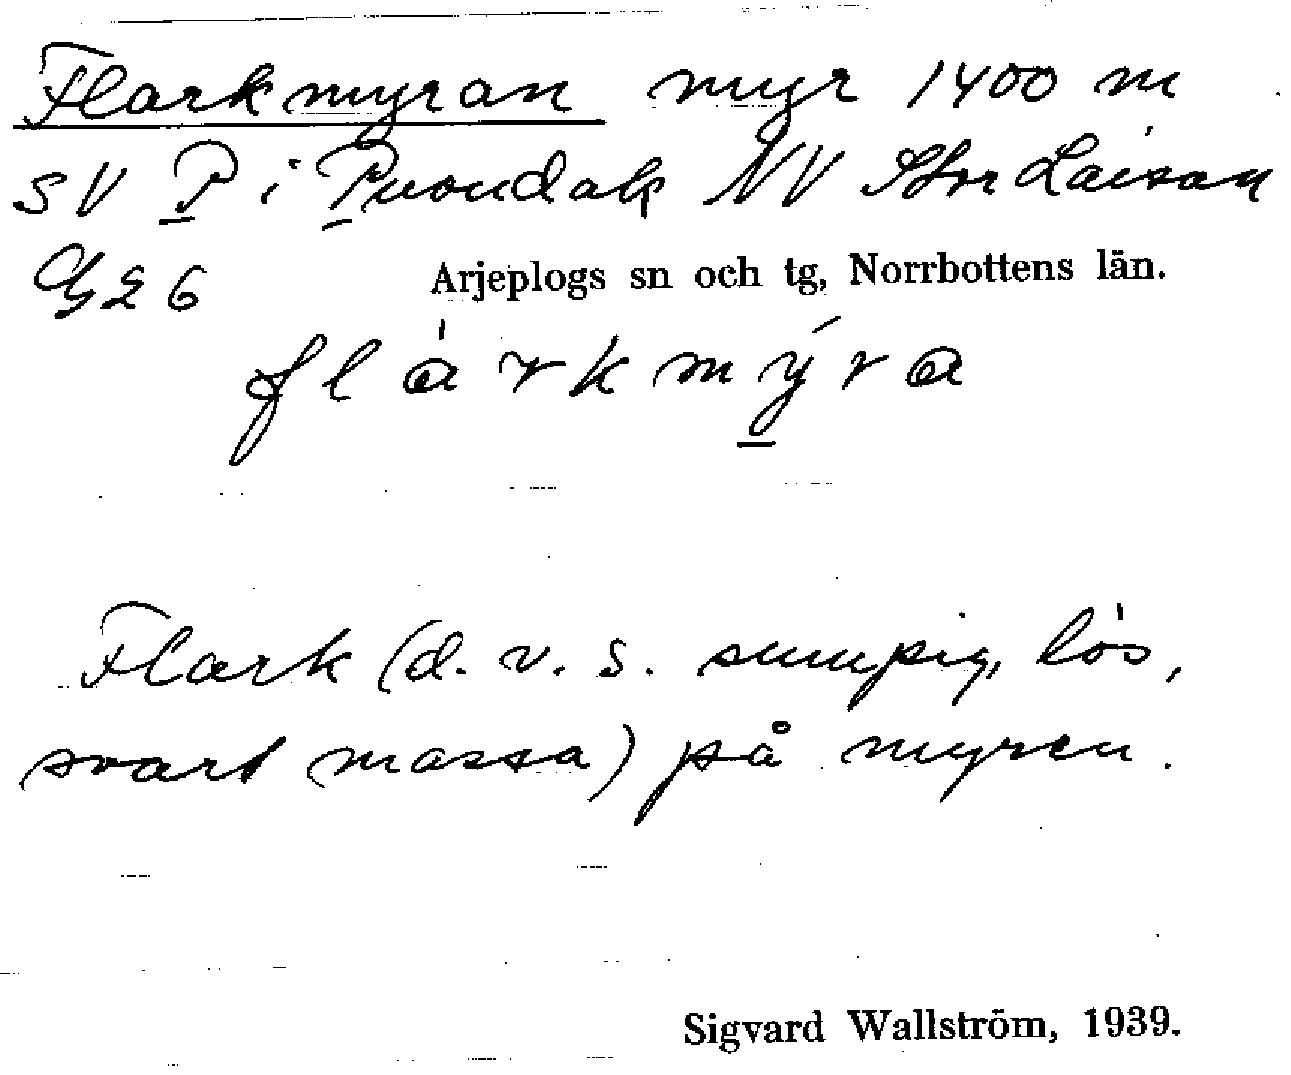 Flarkmyran myr 1400 m
SV P i Puondak NV Stor Laisan
G26 Arjeplogs sn och tg, Norrbottens län.
flárkmýra
Flark (d. v. s. sumpig, lös,
svart massa) på myren.
Sigvard Wallström, 1939.